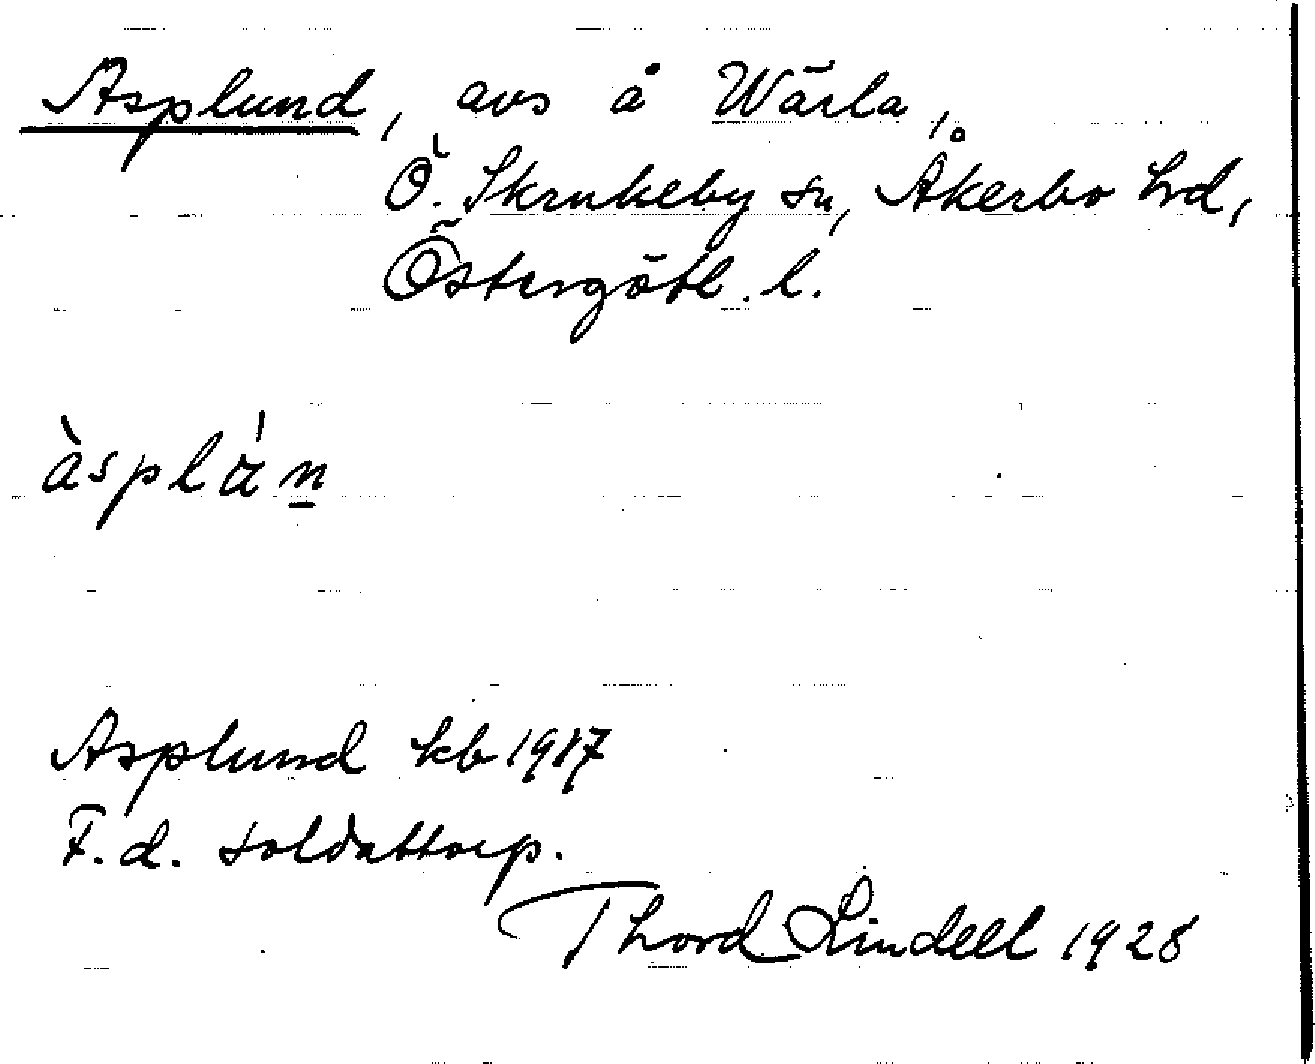 Asplund, avs å Wärla,
Ö. Skrukeby sn, Åkerbo hd,
Östergötl. l.
àsplán
Asplund kb 1917
F.d. soldattorp.
Thord Lindell 1928